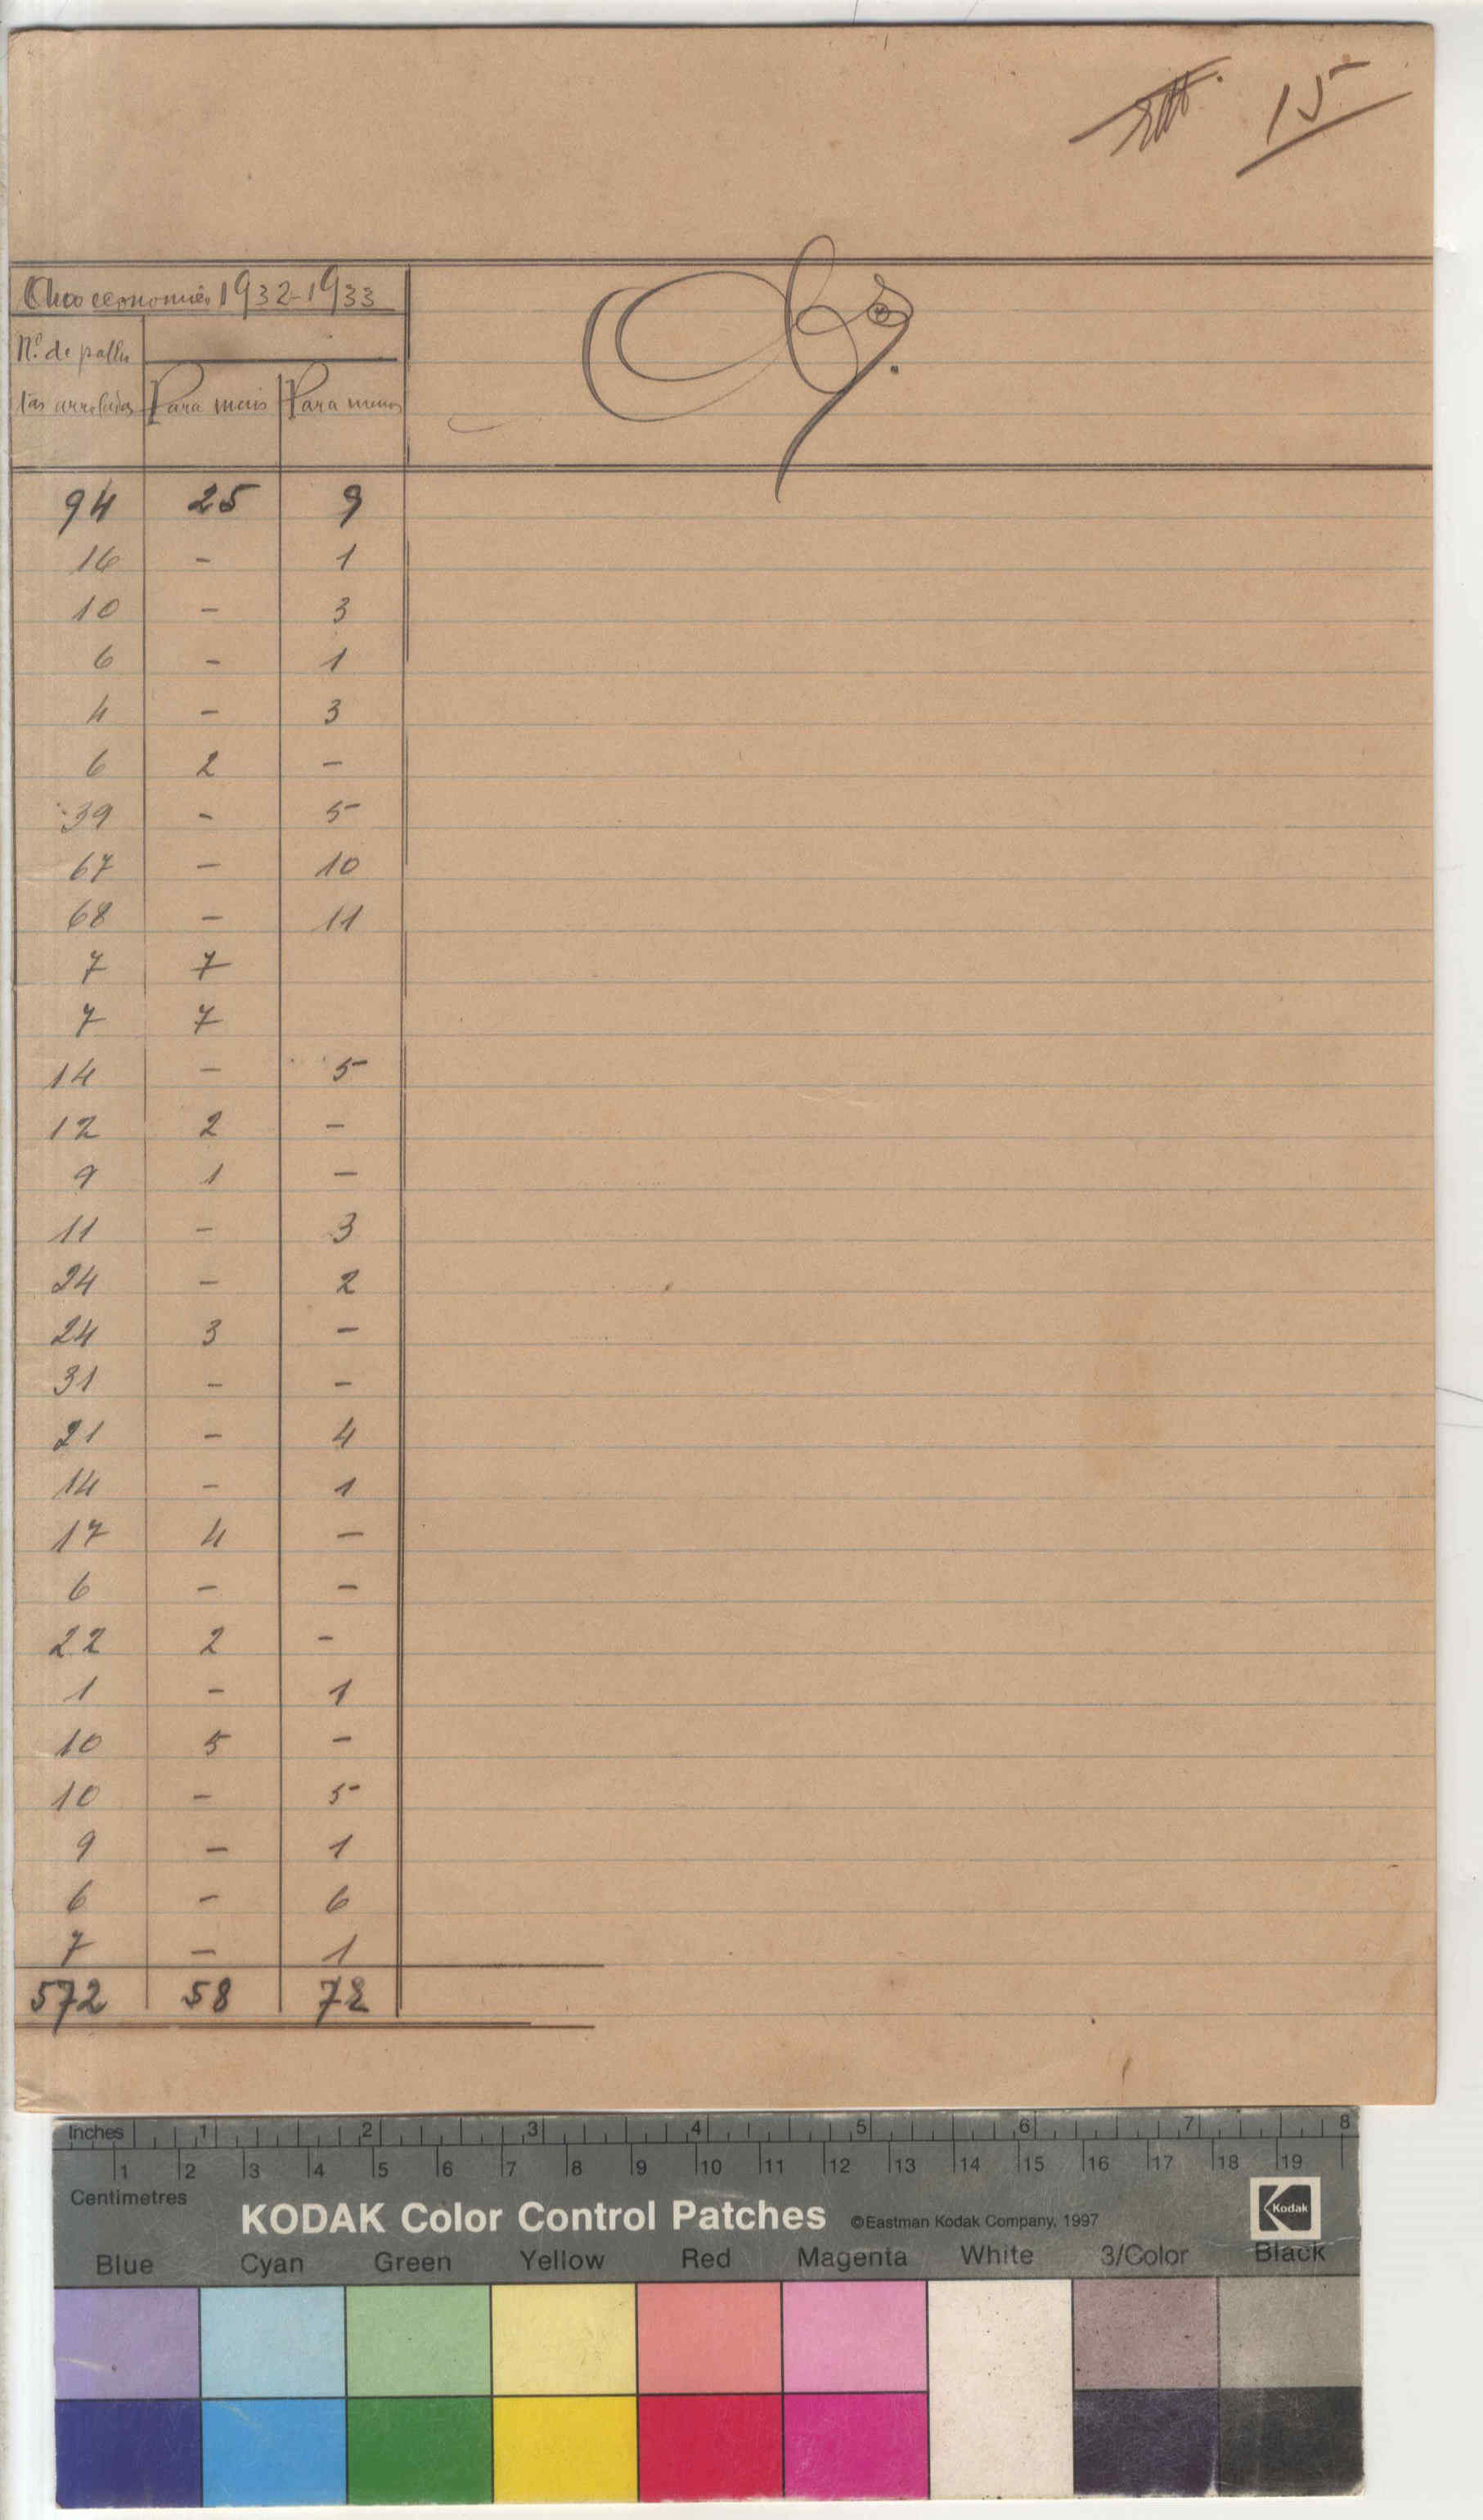 15
Ano economico 1932-1933
N.º de palho
tas arroladas Para mais Para menos
Obs.
94 25 9
16 - 1
10 - 3
6 - 1
4 - 3
6 2 -
39 - 5
67 - 10
68 - 11
7 7
7 7
14 - 5
12 2 -
9 1 -
11 - 3
24 - 2
24 3 -
31 - -
21 - 4
14 - 1
17 4 -
6 - -
22 2 -
1 - 1
10 5 -
10 - 5
9 - 1
6 - 6
7 - 1
572 58 72
Inches 1 2 3 4 5 6 7 8
1 2 3 4 5 6 7 8 9 10 11 12 13 14 15 16 17 18 19
Centimetres
KODAK Color Control Patches ©Eastman Kodak Company, 1997 Kodak
Blue Cyan Green Yellow Red Magenta White 3/Color Black